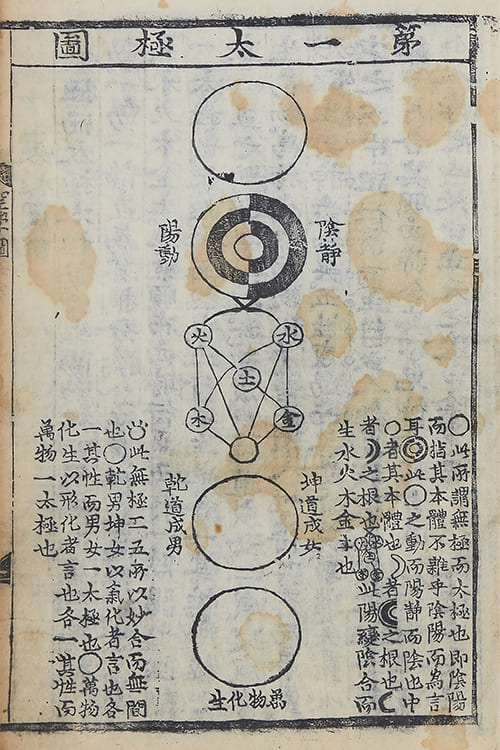 第一太極圖
陰靜
陽動
火
水
土
木
金
坤道成女
乾道成男
萬物化生
○此所謂無極而太極也即陰陽
而指其本體不雜乎陰陽而為言
耳◎此○之動而陽靜而陰也中
○者其本體也☽者☾之根也☾
者☽之根也此陽變陰合而
生水火木金土也
此無極二五所以妙合而無間
也○乾男坤女以氣化者言也各
一其性而男女一太極也○萬物
化生以形化者言也各一其性而
萬物一太極也